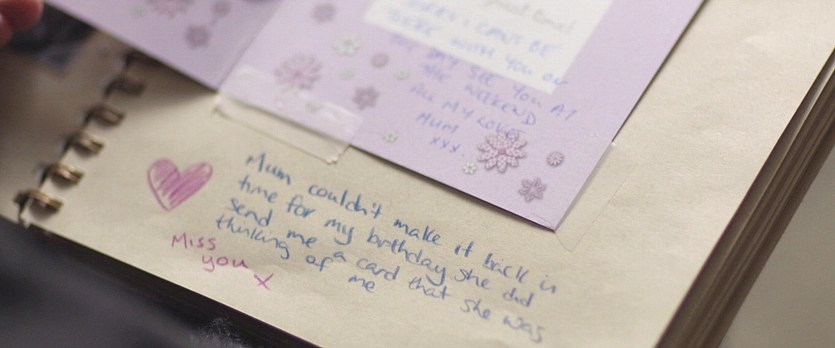 SORRY I CAN'T BE
THERE WITH YOU ON
THE DAY SEE YOU AT
THE WEEKEND
ALL MY LOVE
MUM
xxx.
Mum couldn't make it back in
time for my birthday she did
send me a card that she was
thinking of me
Miss
you x